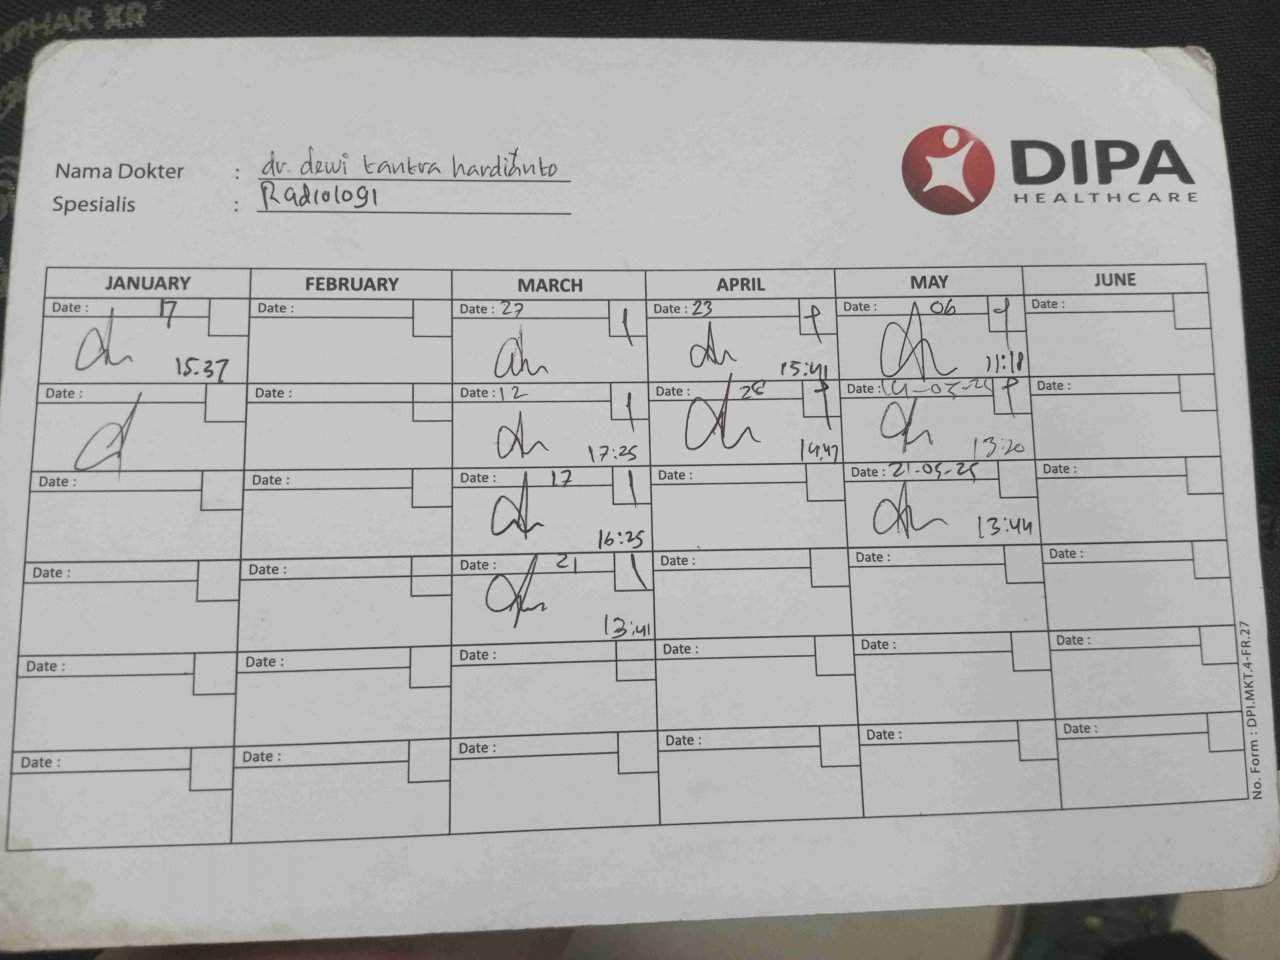 PHAR XR
Nama Dokter : dr. dewi tantra hardianto
Spesialis : Radiologi
DIPA
HEALTHCARE
JANUARY FEBRUARY MARCH APRIL MAY JUNE
Date : 17 Date : Date : 27 Date : 23 Date : 06 Date :
15.37 15:41 11:18
Date : Date : Date : 12 Date : 28 Date : 14-05-25 Date :
17:25 14.47 13:20
Date : Date : Date : 17 Date : Date : 21-05-25 Date :
16:25 13:44
Date : Date : Date : 21 Date : Date : Date :
13:41
Date : Date : Date : Date : Date : Date :
Date : Date : Date : Date : Date : Date :
No. Form : DPI.MKT.4-FR.27